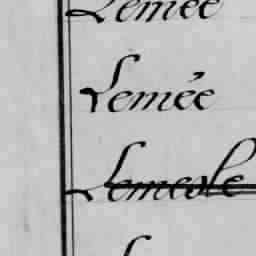 Lemée
Lemée
Lemeole